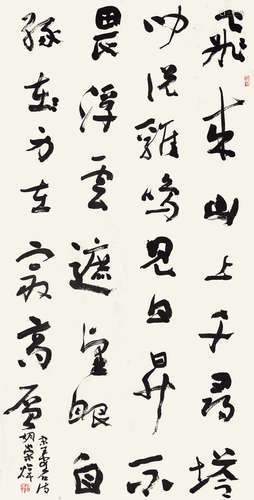 飛來山上千尋塔
聞說雞鳴見日昇不
畏浮雲遮望眼自
緣身在最高層
宋王安石詩